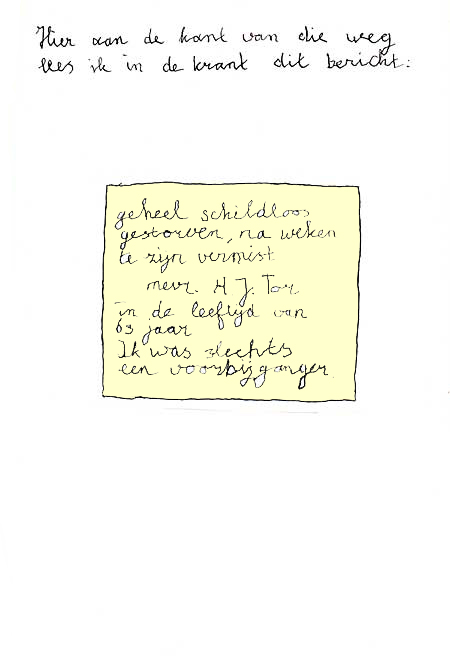 Hier aan de kant van die weg
lees ik in de krant dit bericht:
geheel schildloos
gestorven, na weken
te zijn vermist
mevr. H J. Tor
in de leeftijd van
63 jaar
Ik was slechts
een voorbijganger